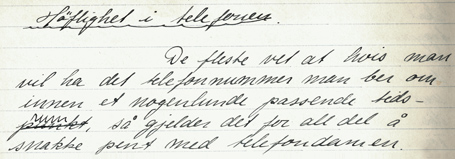 Høflighet i telefonen.
De fleste vet at hvis man
vil ha det telefonnummer man ber om
innen et nogenlunde passende tids-
rum
punkt, så gjelder det for all del å
snakke pent med telefondamen.